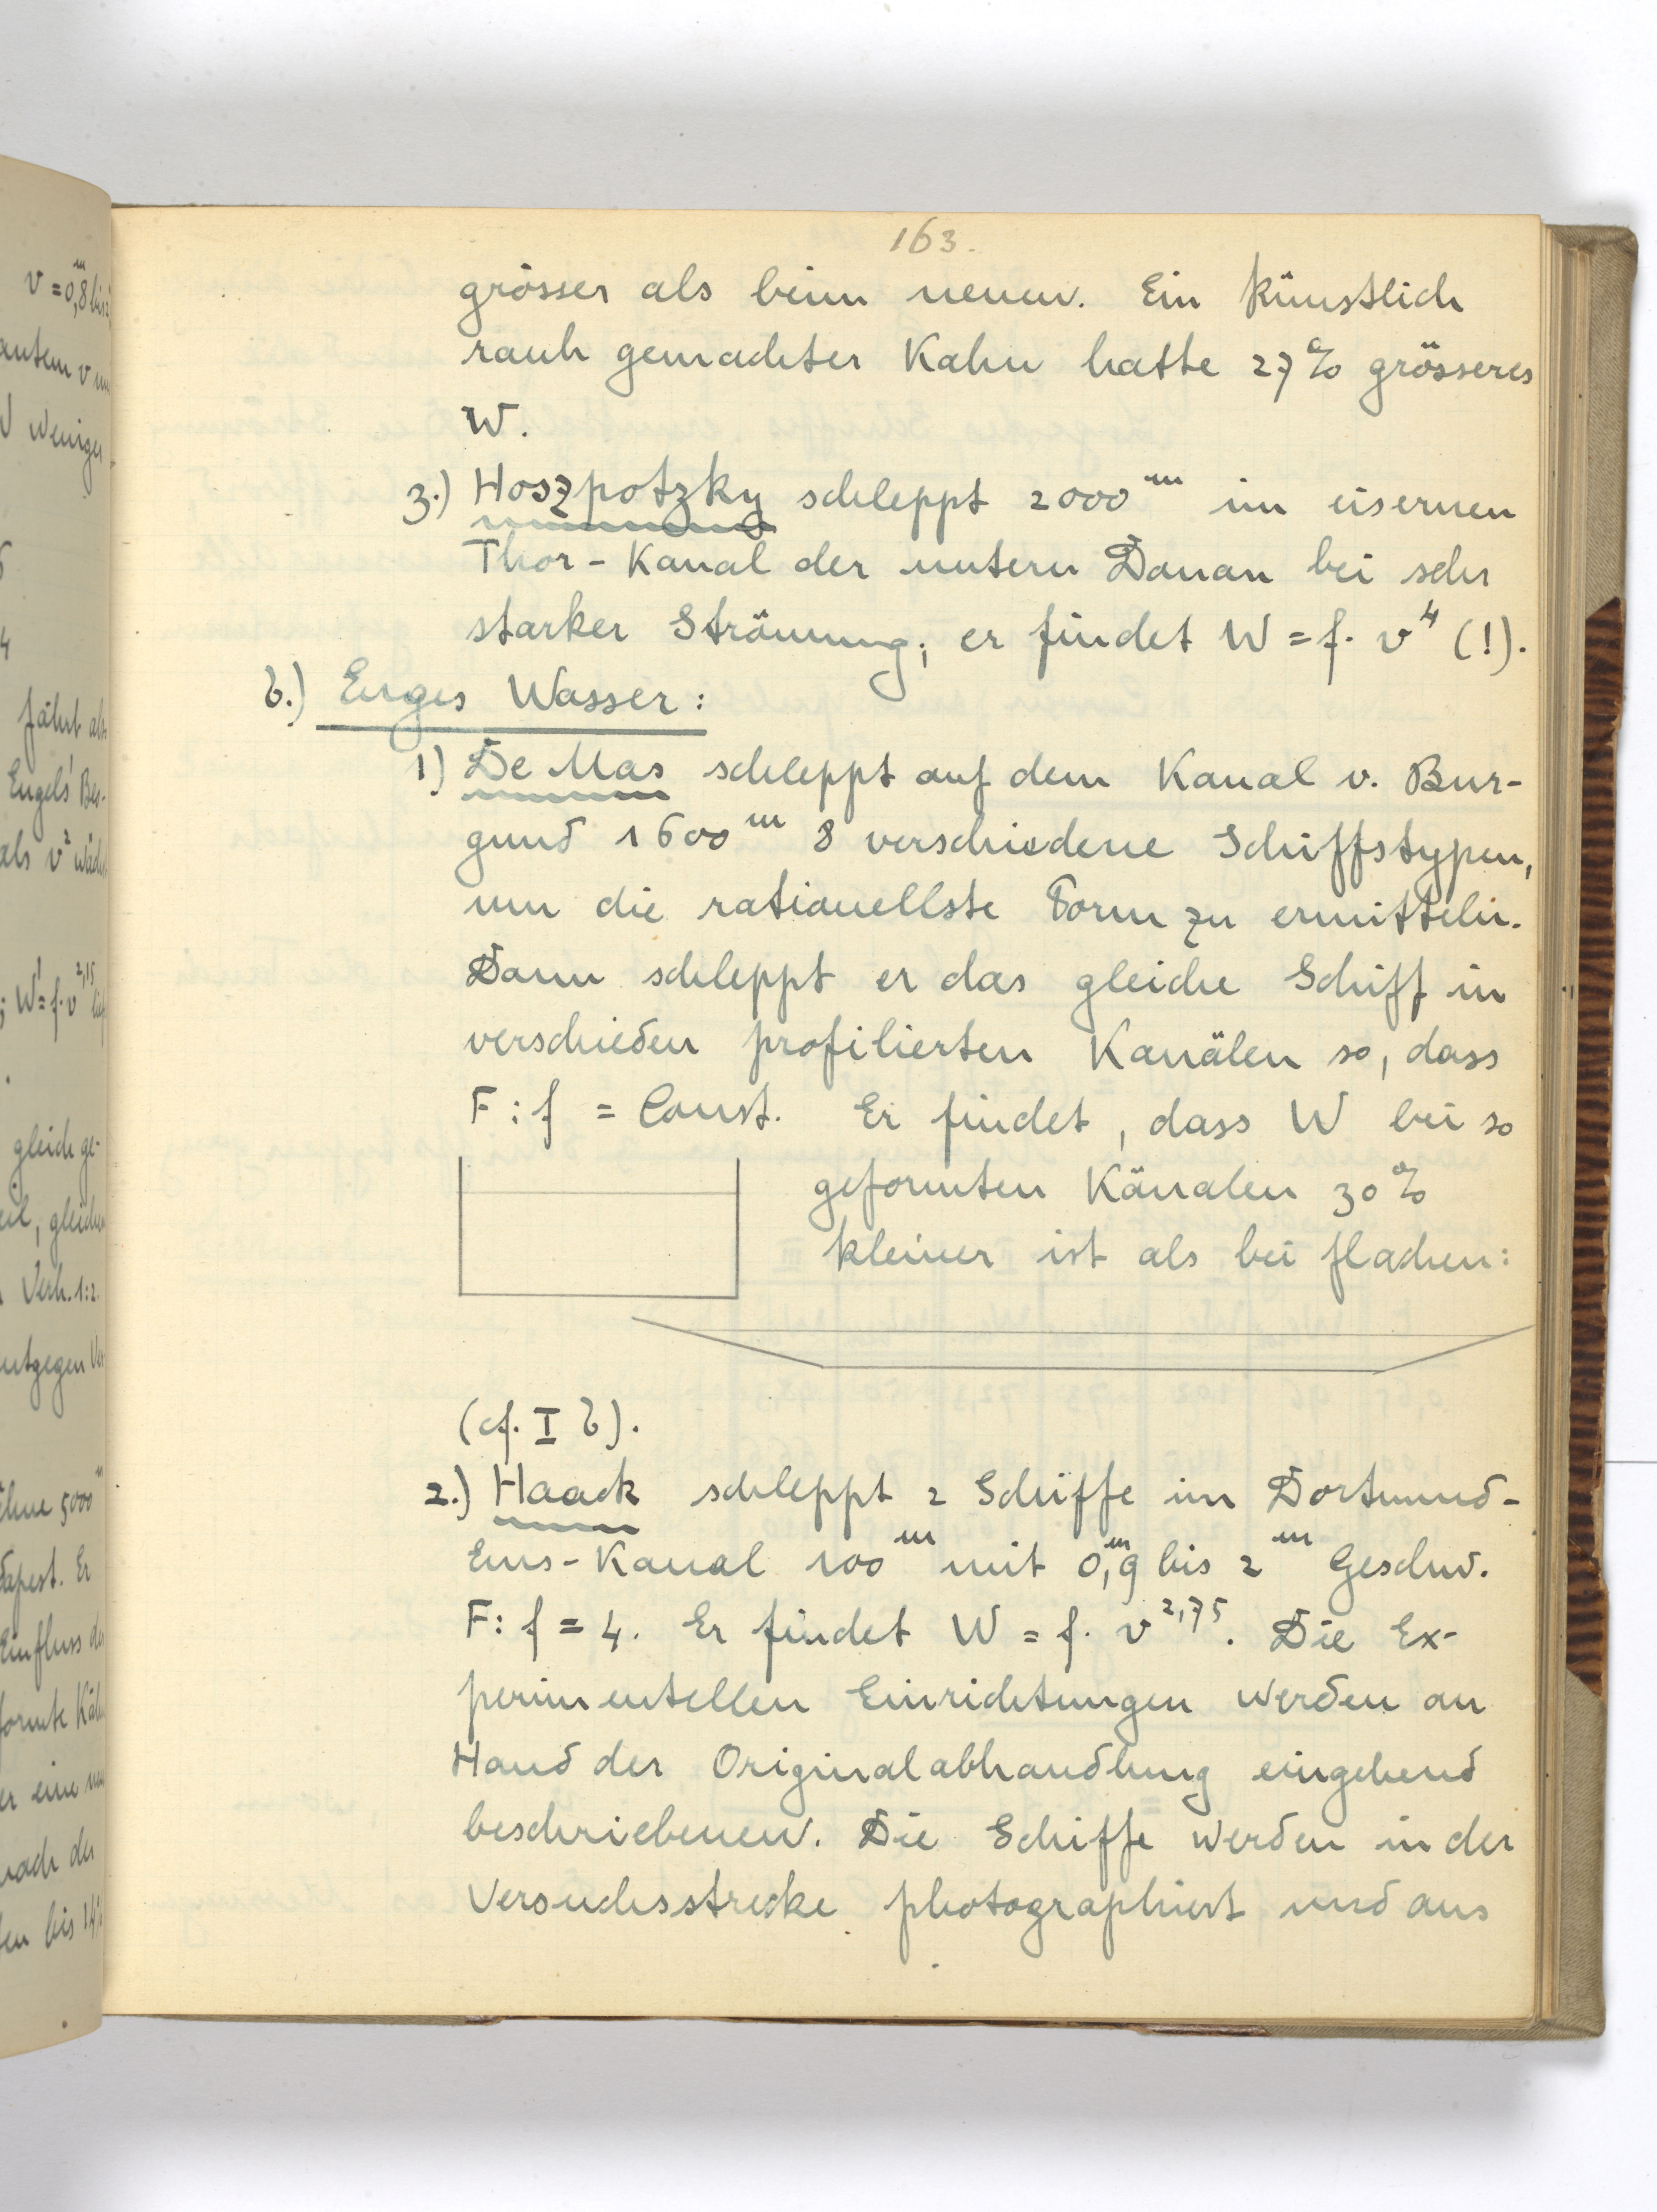 163.
grösser als beim neuen. Ein künstlich
rauh gemachter Kahn hatte 27% grösseres
W.
3.) Hoszpotzky schleppt 2000 m im eisernen
Thor-Kanal der untern Donau bei sehr
starker Strömung; er findet W = f. v⁴ (!).
b.) Enges Wasser:
1) De Mas schleppt auf dem Kanal v. Bur-
gund 1600 m 8 verschiedene Schiffstypen,
um die rationellste Form zu ermitteln.
Dann schleppt er das gleiche Schiff in
verschieden profilierten Kanälen so, dass
F : f = Const. Er findet, dass W bei so
geformten Känalen 30%
kleiner ist als bei flachen:
(cf. I b).
2.) Haack schleppt 2 Schiffe im Dortmund-
Ems-Kanal 100 m mit 0,9 m bis 2 m Geschw.
F : f = 4. Er findet W = f. v^2,75. Die Ex-
perimentellen Einrichtungen werden an
Hand der Originalabhandlung eingehend
beschriebenen. Die Schiffe werden in der
Versuchsstrecke photographiert und aus
v = 0,8 m bis
weniger
fährt als
Engels' Bes-
als v²
; W = f. v^2,15
gleich ge-
Verh. 1:2.
entgegen
5000 m
dapest. Er
Einfluss der
nach der
bis 14%